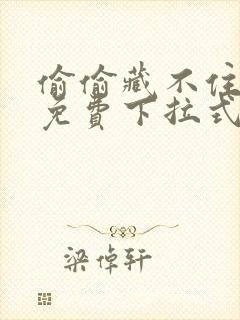 偷偷藏不住
免費下拉式
梁倬轩